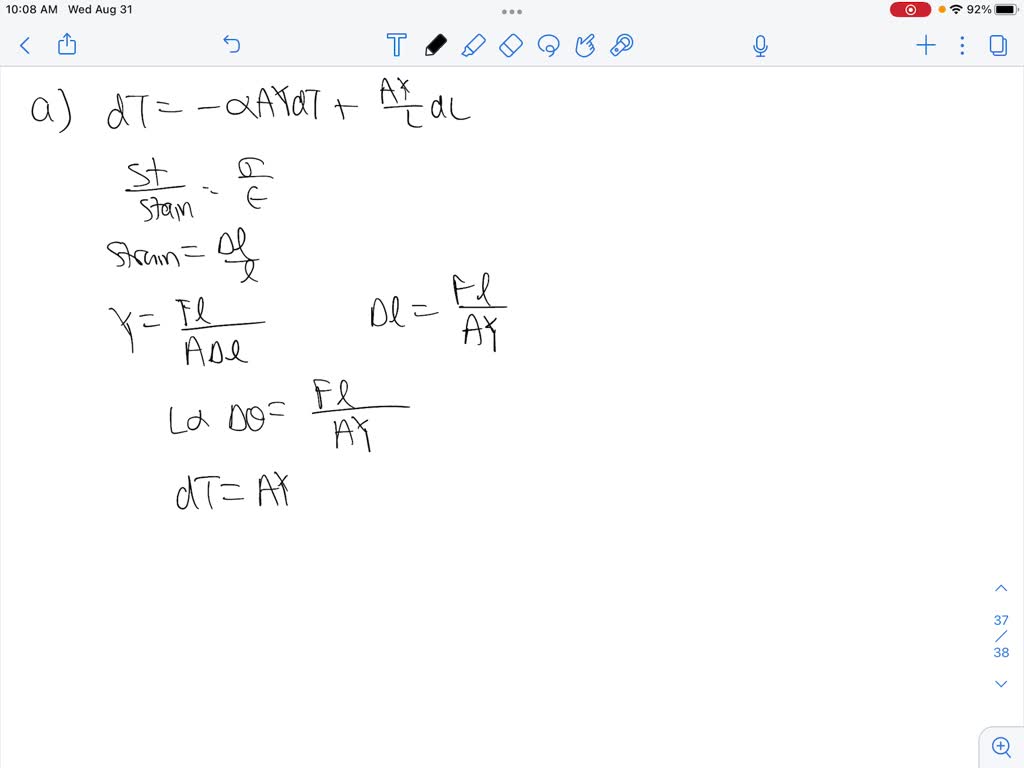 10:08 AM Wed Aug 31
92%
a) dT = -αAYdT + AY/L dL
St/Stain = σ/ε
Strain = Δl/l
Y = Fl/AΔl
Δl = Fl/AY
Lα Δθ = Fl/AY
dT = AY
37
/
38